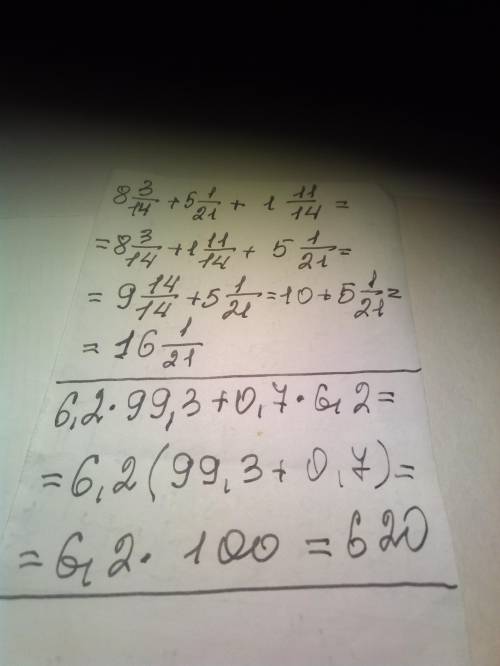 8 3/14 + 5 1/21 + 1 11/14 =
= 8 3/14 + 1 11/14 + 5 1/21 =
= 9 14/14 + 5 1/21 = 10 + 5 1/21 =
= 16 1/21
6,2 · 99,3 + 0,7 · 6,2 =
= 6,2 ( 99,3 + 0,7 ) =
= 6,2 · 100 = 620